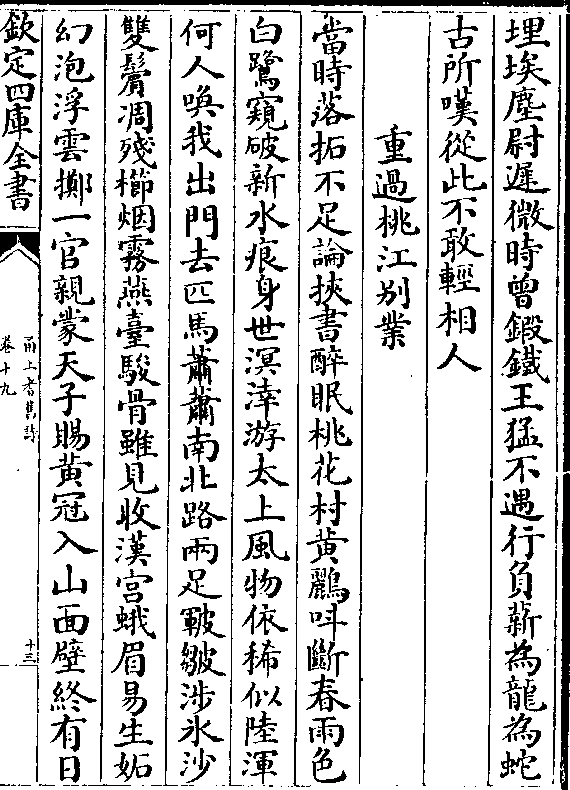 埋埃塵尉遲微時曾鍜鐵王猛不遇行負薪為龍為蛇
古所嘆從此不敢輕相人
重過桃江别業
當時落拓不足論挾書醉眠桃花村黄鸝呌斷春雨色
白鷺窺破新水痕身世溟涬游太上風物依稀似陸渾
何人喚我出門去匹馬蕭蕭南北路兩足皸皴涉氷沙
雙鬢凋殘櫛烟霧燕臺駿骨雖見收漢宫蛾眉易生妬
幻泡浮雲擲一官親蒙天子賜黄冠入山面壁終有日
欽定四庫全書
甬上耆舊詩
卷十九
十三